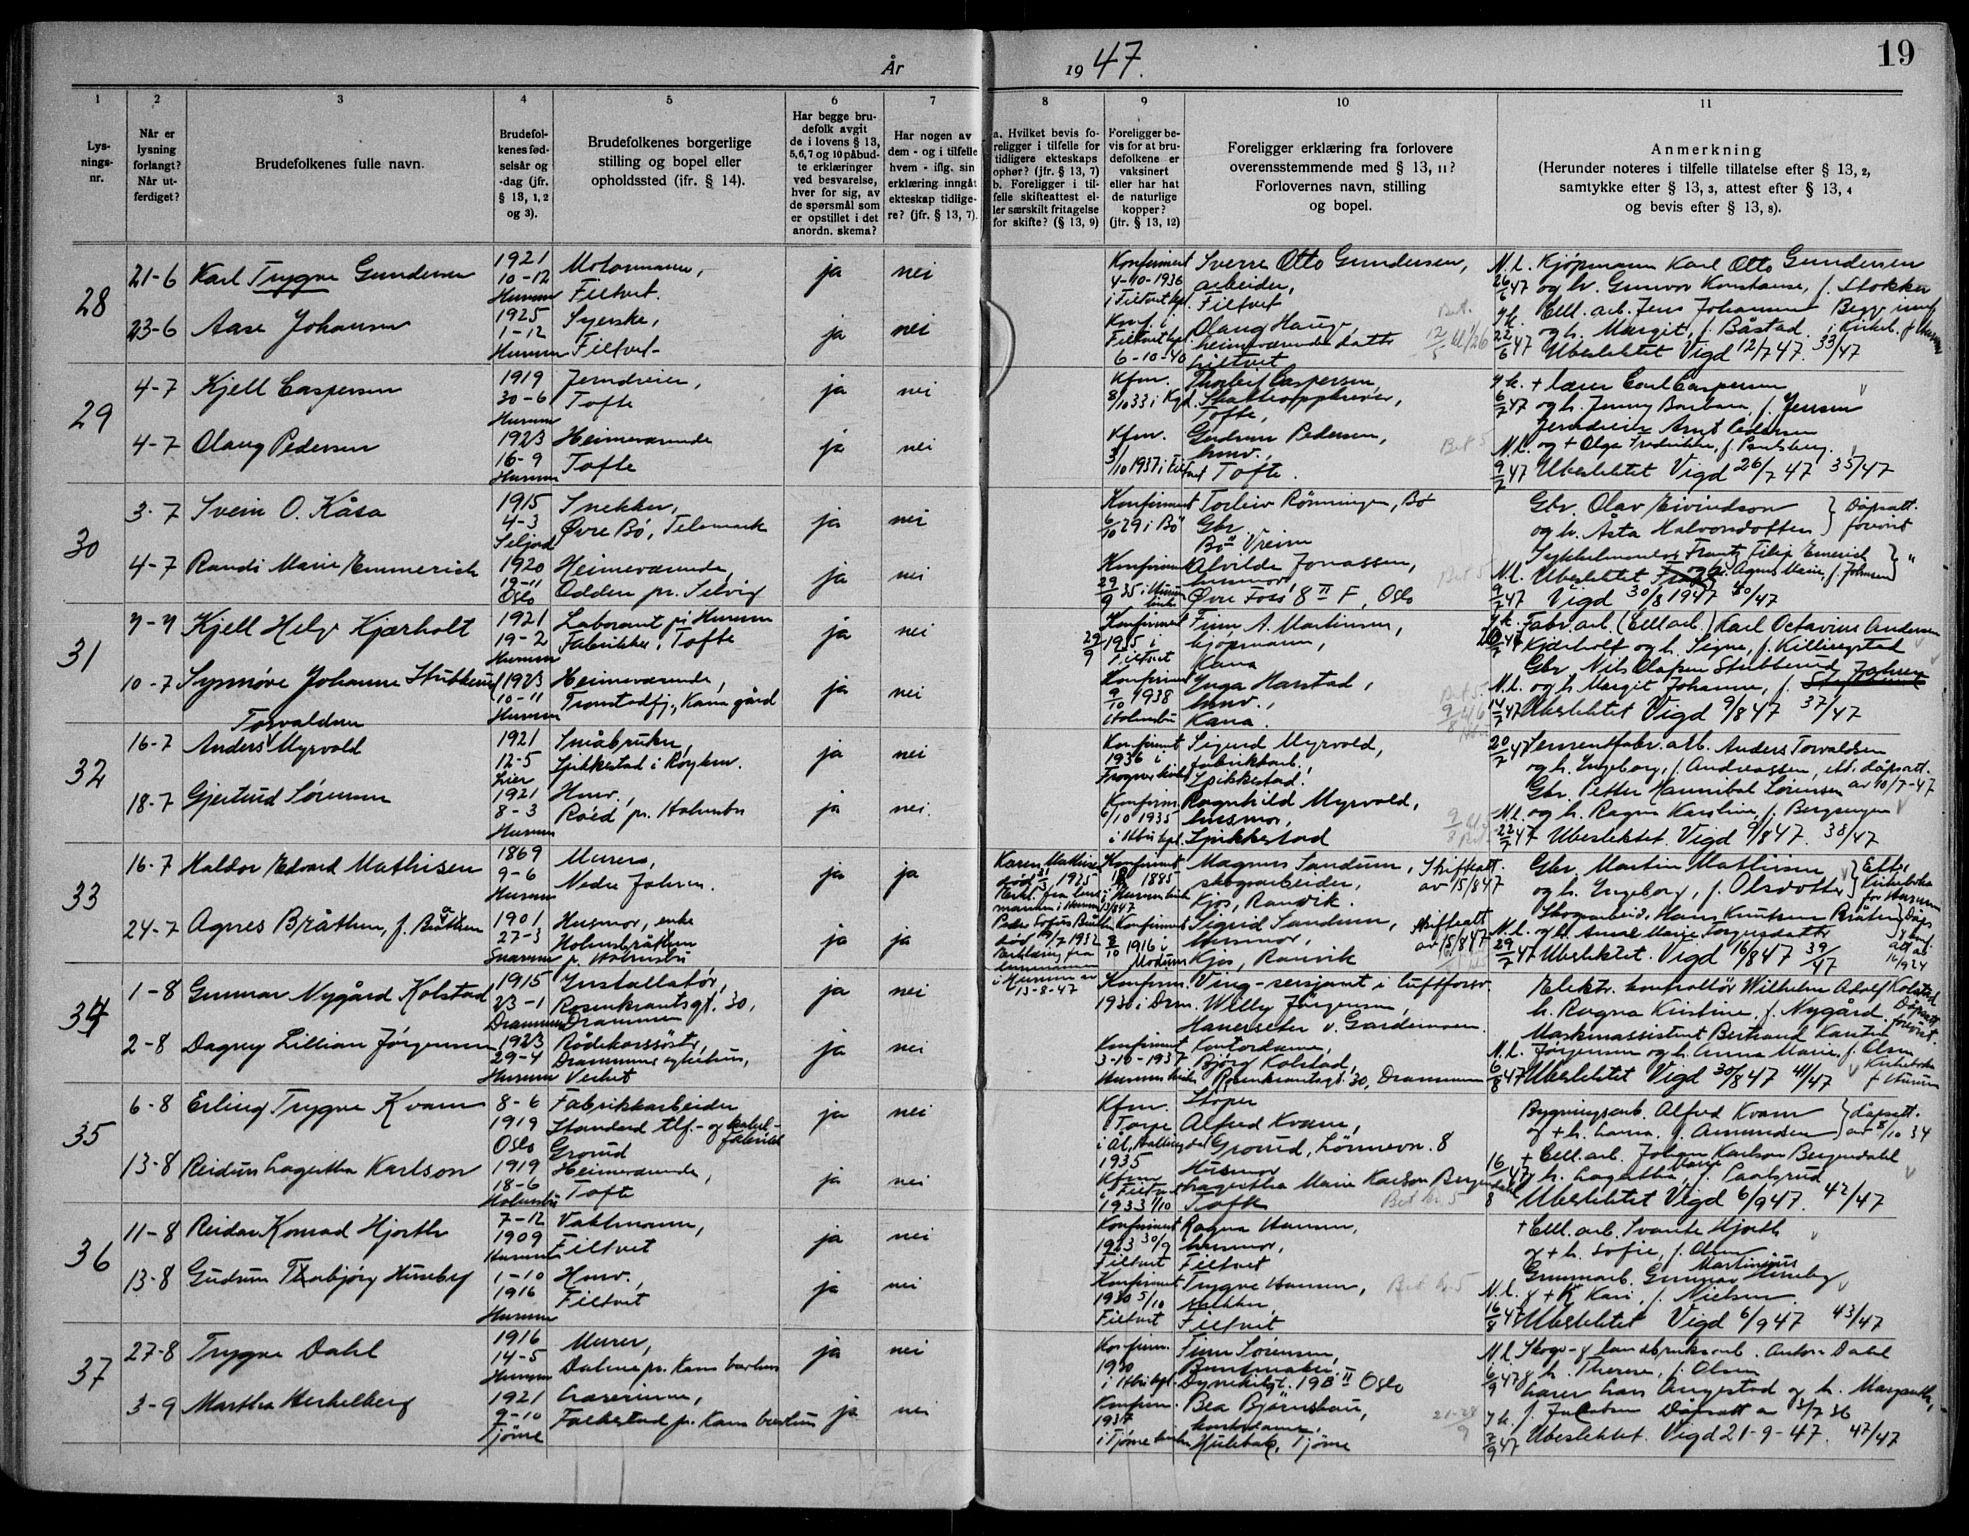 År 19 47.
19
1 2 3 4 5 6 7 8 9 10 11
Lys-
nings-
nr.
Når er
lysning
forlangt?
Når ut-
ferdiget?
Brudefolkenes fulle navn.
Brudefol-
kenes fød-
selsår og
-dag (jfr.
§ 13, 1, 2
og 3).
Brudefolkenes borgerlige
stilling og bopel eller
opholdssted (ifr. § 14).
Har begge bru-
defolk avgit
de i lovens § 13,
5, 6, 7 og 10 påbud-
te erklæringer
ved besvarelse,
hver for sig, av
de spørsmål som
er opstillet i det
anordn. skema?
Har nogen av
dem - og i tilfelle
hvem - iflg. sin
erklæring inngåt
ekteskap tidlige-
re? (jfr. § 13, 7).
a. Hvilket bevis fo-
religger i tilfelle for
tidligere ekteskaps
ophør? (jfr. § 13, 7)
b. Foreligger i til-
felle skifteattest el-
ler særskilt fritagelse
for skifte? (§ 13, 9)
Foreligger be-
vis for at bru-
defolkene er
vaksinert
eller har hat
de naturlige
kopper?
(jfr. § 13, 12)
Foreligger erklæring fra forlovere
overensstemmende med § 13, 11?
Forlovernes navn, stilling
og bopel.
Anmerkning
(Herunder noteres i tilfelle tillatelse efter § 13, 2,
samtykke efter § 13, 3, attest efter § 13, 4
og bevis efter § 13, 8).
28
21-6 Karl Trygve Gundersen
1921
10-12
Hurum
Motormann,
Filtvet.
ja nei
Konfirmert
4-10-1936
i Filtvet kpl.
Sverre Otto Gundersen,
arbeider,
Filtvet
N.l. Kjøpmann Karl Otto Gundersen
26/6 47 og h. Gunvor Konstanse, f. Stokker
23-6 Aase Johansen
1925
1-12
Hurum
Syerske,
Filtvet-
ja nei
Konf. i
Filtvet kpl.
6-10-40
Olaug Hauge,
heimeværende datter
Filtvet
Cell. arb. Jens Johansen
22/6 47 og h. Margit, f. Båstad.
Ubeslektet Vigd 12/7 47. 33/47
29
4-7 Kjell Caspersen
1919
30-6
Hurum
Jerndreier,
Tofte
ja nei
Kfm.
8/10 33 i
Thorleif Caspersen,
Skatteoppkrever,
Tofte,
+ lærer Carl Caspersen
6/7 47 og h. Jenny Barbara, f. Jensen
4-7 Olaug Pedersen
1923
16-9
Hurum
Heimeværende
Tofte
ja nei
Kfm.
3/10 1937 i Filtvet
Gudrun Pedersen,
hmv.,
Tofte.
Bet 5
Jerndreier Arnt Pedersen
N.l. og + Olga Fredrikke, f. Paulsberg.
9/7 47 Ubeslektet Vigd 26/7 47 35/47
30
3-7 Svein O. Kåsa
1915
4-3
Seljord
Snekker,
Øvre Bø, Telemark
ja nei
Konfirmert
6/10 29 i Bø
Torleiv Rønningen, Bø
Gbr.
Bø Vreim
Gbr. Olav Eivindson
og h. Åsta Halvorsdotter } Dåpsatt. forevist
4-7 Randi Marie Emmerich
1920
19-11
Oslo
Heimeværende,
Odden pr. Selvig
ja nei
Konfirmert
29/9 35 i Hurum
kirke
Alvilde Jonassen,
husmor,
Øvre Foss 8 II F, Oslo
Bet 5
Frantz Filip Emerich
N.l. Ubeslektet og h. Agnes Marie, f. Johnsen } "
9/7 47 Vigd 30/8 1947 40/47
31
7-7 Kjell Helge Kjærholt
1921
19-2
Hurum
Laborant på Hurum
Fabrikker, Tofte
ja nei
Konfirmert
29/9 1935 i
Filtvet
Finn A. Martinsen,
kjøpmann,
Kana
Fabr. arb. (Cell arb.) Karl Octavius Andersen
Kjærholt og h. Signe, f. Killingstad
10-7 Synnøve Johanne Stubberud
1923
10-11
Hurum
Heimeværende,
Tronstadfj., Kana gård
ja nei
Konfirmert
9/10 1938
Holmsbu
Ynga Harstad,
hmv.,
Kana.
Gbr. Nils Olafsen Stubberud
N.l. og h. Margit Johanne, f. Johnsen
14/7 47 Ubeslektet Vigd 9/8 47 37/47
32
16-7 Anders Torvaldsen Myrvold
1921
12-5
Lier
Småbruker,
Spikkestad i Røyken.
ja nei
Konfirmert
1936 i
Frogner kirke
Sigurd Myrvold,
fabrikkarb.,
Spikkestad.
20/7 47 Sementfabr. arb. Anders Torvaldsen
og h. Ingeborg, f. Andreassen, dåpsatt.
av 10/7-47
18-7 Gjertrud Sørensen
1921
8-3
Hurum
Hmv.,
Røed pr. Holmsbu
ja nei.
Konfirm.
6/10 1935
i Hbu kpl.
Ragnhild Myrvold,
husmor,
Spikkestad
Gbr. Petter Hannibal Sørensen
N.l. og h. Ragna Karoline, f. Bergsengen
22/7 47 Ubeslektet. Vigd 9/8 47. 38/47
33
16-7 Haldor Edvard Mathisen
1869
9-6
Hurum
Murer,
Nedre Jahren.
ja ja
Karen Mathisen
død 1925
Konfirmert
1885
i Hurum kirke
Magnus Sandum,
skogsarbeider,
Kjos, Ranvik.
Skifteatt.
av 15/8 47
Gbr. Martin Mathisen
og h. Ingeborg, f. Olsdotter } Efter Kirkeboka for Hurum
24-7 Agnes Bråthen, f. Bråthen
1901
27-3
Husmor, enke
Holmsbråthen
p. Holmsbu
ja ja
Peder Sofus Bråthen
død 19/7 1932
Erklæring fra
lensmannen
i Hurum av
13-8-47
Konfirmert
8/10 1916 i
Modum
Sigrid Sandum,
husmor,
Kjos, Ranvik
Skifteatt
av 15/8 47
Skogarbeid. Hans Knutsen Bråten
N.l. og h. Anne Marie Torgersdatter
29/7 47 Ubeslektet. Vigd 16/8 47 39/47
34
1-8 Gunnar Nygård Kolstad
1915
23-1
Drammen
Installatør,
Rosenkrantzgt. 30,
Drammen
ja nei
Konfirm.
1930 i Drm.
Ving-sersjant i luftforsv.
Willy Jørgensen,
Hanerseter v. Gardermoen.
Elektr. kontrollør Wilhelm Adolf Kolstad
h. Ragna Kristine, f. Nygård. Dåpsatt. forevist.
2-8 Dagny Lillian Jørgensen
1923
29-4
Hurum
Rødekorssøster,
Drammens sykehus,
Verket
ja nei
Konfirmert
3-10-1937
Hurum kirke
Kontordame,
Bjørg Kolstad,
Rosenkrantzgt. 30, Drammen
Maskinassistent Bertrand Karsten
N.l. Jørgensen og h. Anna Marie, f. Olsen
6/8 47 Ubeslektet Vigd 30/8 47 41/47
Kirkeboka
f Hurum
35
6-8 Erling Trygve Kvam
8-6
1919
Oslo
Fabrikkarbeider
Standard tlf.- og kabel-
fabrikk
Grorud
ja nei
Kfm.
Torpe
i Ål, Hallingdal
1935
Støper
Alfred Kvam,
Grorud, Lønnevn. 8
Bygningsarb. Alfred Kvam
og + h. Anna. f. Amundsen } Dåpsatt. av 8/10 34
13-8 Reidun Lagertha Karlson
1919
18-6
Holmsbu
Heimeværende,
Tofte
ja nei
Kfm.
i Filtvet
1933 1/10
Husmor
Lagertha Marie Karlson Bergendahl
Tofte
Bet kr. 5
+ Cell. arb. Johan Karlson Bergendahl
16/8 47 og h. Lagertha Marie, f. Paalsrud
Ubeslektet Vigd 6/9 47. 42/47
36
11-8 Reidar Konrad Hjorth
7-12
1909
Hurum
Vaktmann,
Filtvet
ja nei
Konfirmert
1923 30/9
Filtvet
Ragna Hansen,
husmor,
Filtvet
+ Cell. arb. Svante Hjorth
og + h. Sofie, f. Olsen
13-8 Gudrun Thorbjørg Huseby
1-10
1916
Hurum
Hmv.,
Filtvet
ja nei
Konfirmert
1930 5/10
Filtvet
Trygve Hansen,
snekker,
Filtvet
Bet kr 5
Grunnarb. Gunnar Martinius Huseby
N.l. og + h. Kari, f. Nielsen.
16/8 47 Ubeslektet Vigd 6/9 47 43/47
37
27-8 Trygve Dahl
1916
14-5
Hurum
Murer,
Dalene pr. Kana brevhus
ja nei
Konfirm.
1930
i Hbu kpl.
Finn Sørensen,
Buntmaker,
Dynekilgt. 19 B II Oslo
N.l. Skogs- og landbruksarb. Anton Dahl
6/9 47 og h. Therese, f. Olsen
3-9 Martha Herkelberg
1921
9-10
Tjøme
Lærerinne,
Falkestad p. Kana brevhus
ja nei
Konfirm.
1937
i Tjøme kirke
Bea Bjørnskau,
kontordame,
Hulebak, Tjøme
21-28/9
Lærer Lars Angestad og h. Margarethe,
f. Jacobsen Dåpsatt av 13/7 36
7/9 47 Ubeslektet. Vigd 21-9-47. 47/47